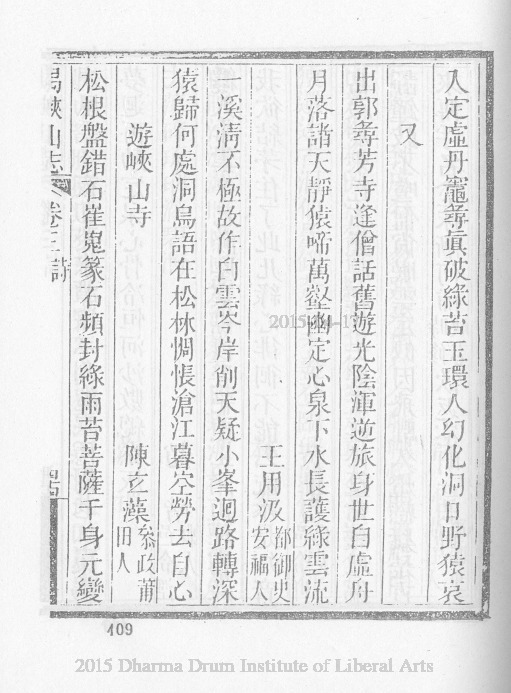 入定虛丹竈尋眞破綠苔玉環人幻化洞口野猿哀
又
出郭尋芳寺逢僧話舊遊光陰渾逆旅身世自虛舟
月落諸天靜猿啼萬壑幽定心泉下水長護綠雲流
王用汲都御史安福人
一溪淸不極故作白雲岑岸削天疑小峯迴路轉深
猿歸何處洞鳥語在松林惆悵滄江暮空勞去自心
遊峽山寺
陳玄藻叅政莆田人
松根盤錯石崔嵬篆石頻封綠雨苔菩薩千身元變
禺峽山志
卷三
詩
409
2015-04-1
2015 Dharma Drum Institute of Liberal Arts